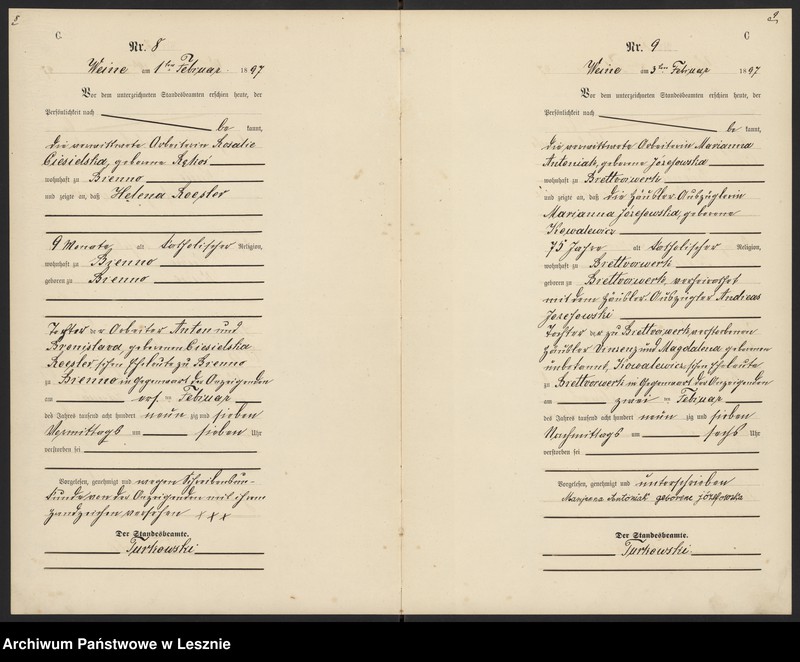 8
C.
Nr. 8
Weine am 1ten Februar 1897
Vor dem unterzeichneten Standesbeamten erschien heute, der
Persönlichkeit nach
be kannt,
die verwittwete Arbeiterin Rosalie
Ciesielska, geborene
wohnhaft zu Brenno
und zeigte an, daß Helena Roesler
9 Monate alt katholischer Religion,
wohnhaft zu Brenno
geboren zu Brenno
Tochter der Arbeiter Anton und
Bronislava, geborenen Ciesielska
Roesler'schen Eheleute zu Brenno
zu Brenno in Gegenwart der Anzeigenden
am Februar
des Jahres tausend acht hundert neun zig und sieben
Vormittags um sieben Uhr
verstorben sei
Vorgelesen, genehmigt und wegen Schreibensun-
kunde von der Anzeigenden mit ihrem
Handzeichen versehen +++
Der Standesbeamte.
Turkowski
9
C
Nr. 9
Weine am 3ten Februar 1897
Vor dem unterzeichneten Standesbeamten erschien heute, der
Persönlichkeit nach
be kannt,
die verwittwete Arbeiterin Marianna
Antoniak, geborene Józefowska
wohnhaft zu Brettvorwerk
und zeigte an, daß die Häusler-Auszüglerin
Marianna Józefowska, geborene
Kowalewicz
75 Jahre alt katholischer Religion,
wohnhaft zu Brettvorwerk
geboren zu Brettvorwerk, verheirathet
mit dem Häusler-Auszügler Andreas
Józefowski
Tochter der zu Brettvorwerk verstorbenen
Häusler Vinzenz und Magdalena geborenen
unbekannt, Kowalewicz'schen Eheleute
zu Brettvorwerk in Gegenwart der Anzeigenden
am zwei ten Februar
des Jahres tausend acht hundert neun zig und sieben
Nachmittags um sechs Uhr
verstorben sei
Vorgelesen, genehmigt und unterschrieben
Maryanna Antoniak geborene Józefowska
Der Standesbeamte.
Turkowski
Archiwum Państwowe w Lesznie